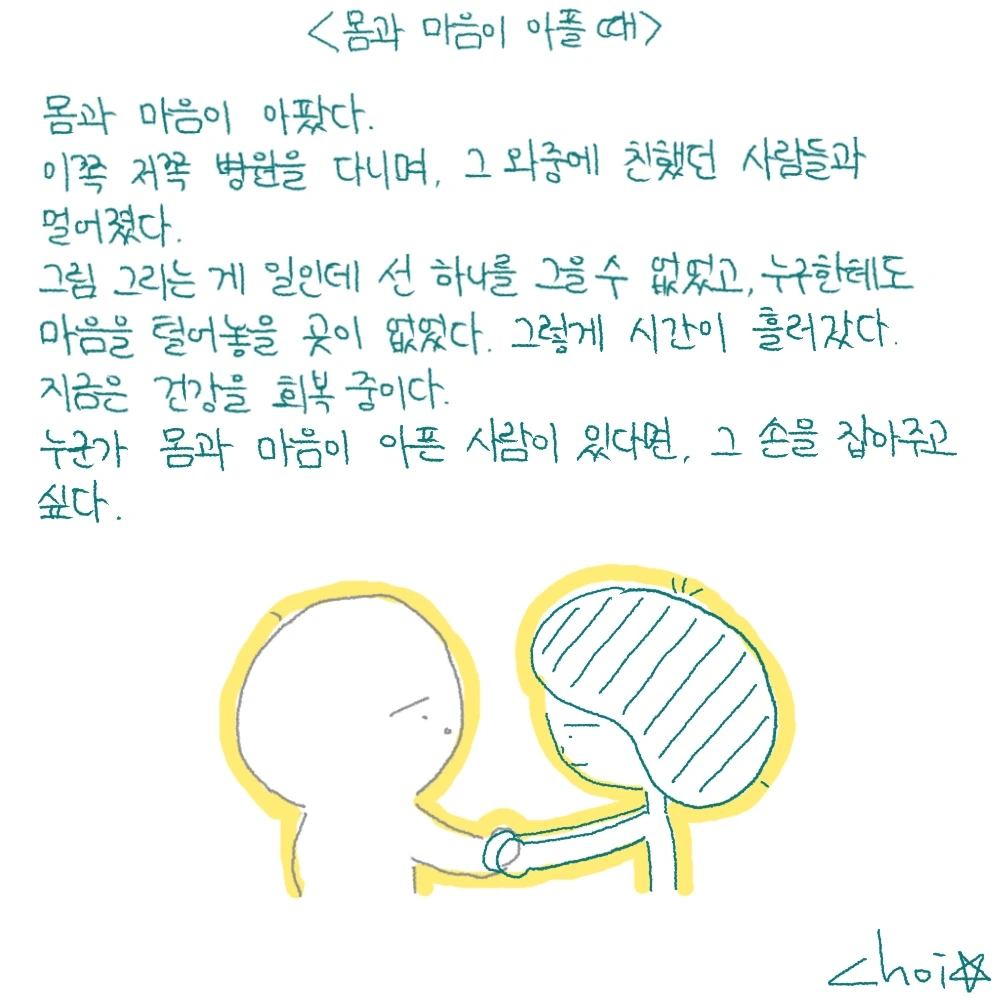 <몸과 마음이 아플 때>
몸과 마음이 아팠다.
이쪽 저쪽 병원을 다니며, 그 와중에 친했던 사람들과
멀어졌다.
그림 그리는 게 일인데 선 하나를 그을 수 없었고, 누구한테도
마음을 털어놓을 곳이 없었다. 그렇게 시간이 흘러갔다.
지금은 건강을 회복 중이다.
누군가 몸과 마음이 아픈 사람이 있다면, 그 손을 잡아주고
싶다.
choi☆